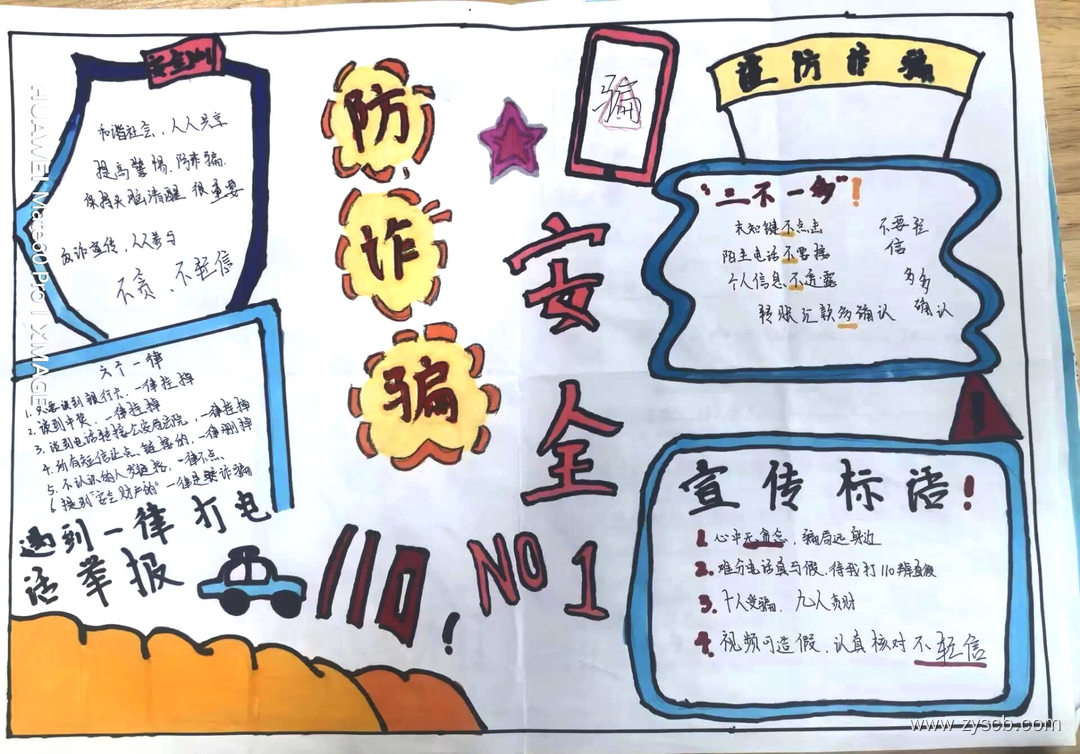 和谐社会，人人共享
提高警惕，防诈骗，
保持头脑清醒 很重要
反诈宣传，人人参与
不贪、不轻信
六个一律
1. 只要谈到银行卡，一律挂掉
2. 谈到中奖，一律挂掉
3. 谈到电话转接公安局法院，一律挂掉
4. 所有短信让点，链接的，一律删掉
5. 不认识的人发链接，一律不点、
6. 提到"安全财产的" 一律是骗
遇到一律 打电
话举报
防
诈
骗
安
全
110！
NO 1
骗
谨防诈骗
"三不一多"！
未知键不点击
陌生电话不要接
个人信息不透露
转账汇款多确认
不要轻
信
多多
确认
！
宣传标语！
1. 心中无贪念，骗局远身边
2. 难分电话真与假，待我打110辨真假
3. 十人受骗，九人贪财
4. 视频可造假，认真核对 不轻信
HUAWEI Mate60 Pro | XMAGE
www.zyscb.com